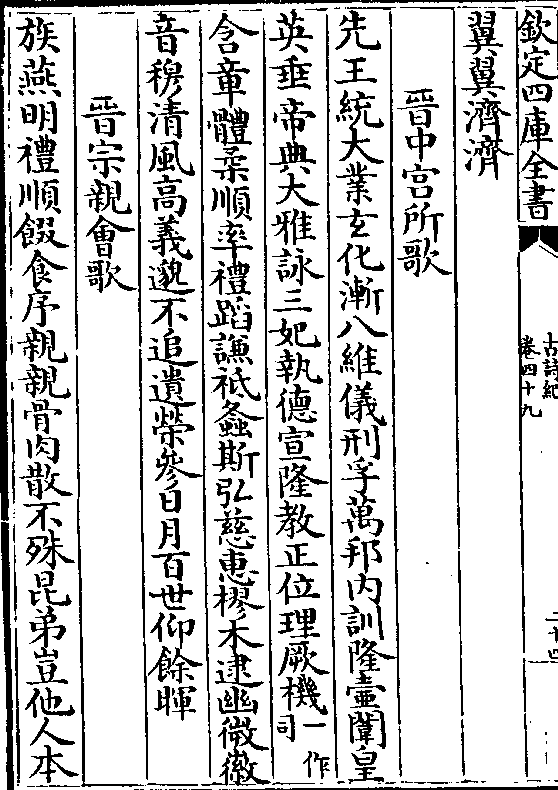 欽定四庫全書
古詩紀
卷四十九
二十四
翼翼濟濟
晉中宮所歌
先王統大業玄化漸八維儀刑孚萬邦内訓隆壼闈皇
英垂帝典大雅詠三妃執德宣隆教正位理厥機一作司
含章體柔順率禮蹈謙祗螽斯弘慈惠樛木逮幽微徽
音穆清風高義邈不追遺榮參日月百世仰餘暉
晉宗親會歌
族燕明禮順餟食序親親骨肉散不殊昆弟豈他人本